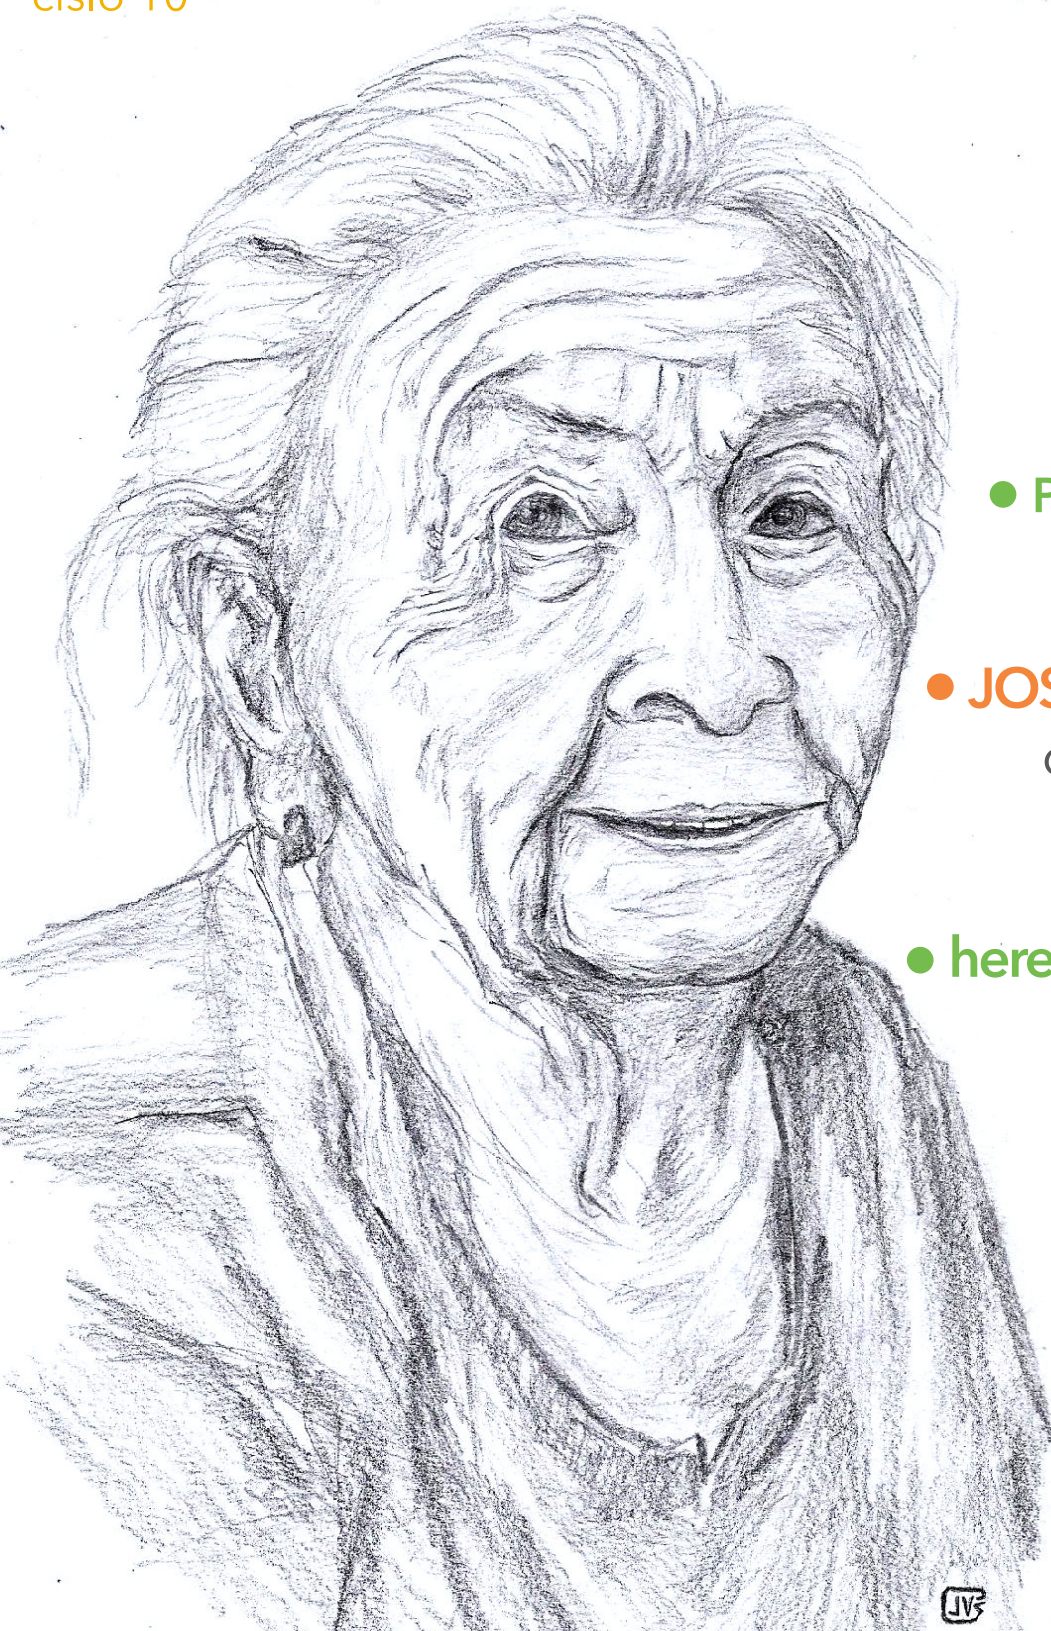 číslo 10
P
JOS
here
JV